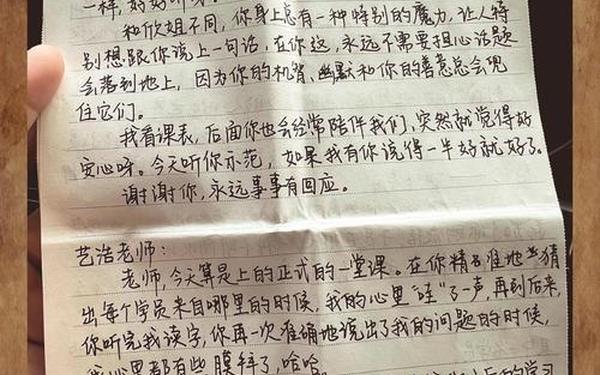 一样,好好听
和欣姐不同,你身上总有一种特别的魔力,让人特
别想跟你说上一句话,在你这,永远不需要担心话题
会落到地上,因为你的机智、幽默和你的善意总会兜
住它们。
我看课表,后面你也会经常陪伴我们,突然就觉得好
安心呀。今天听你示范,如果我有你说得一半好就好了。
谢谢你,永远事事有回应。
艺浩老师:
老师,今天算是上的正式的一堂课。在你精准地猜
出每个学员来自哪里的时候,我的心里“哇”了一声,再到后来,
你听完我读字,你再一次准确地说出了我的问题的时候,
心里都有些膜拜了,哈哈。
的学习